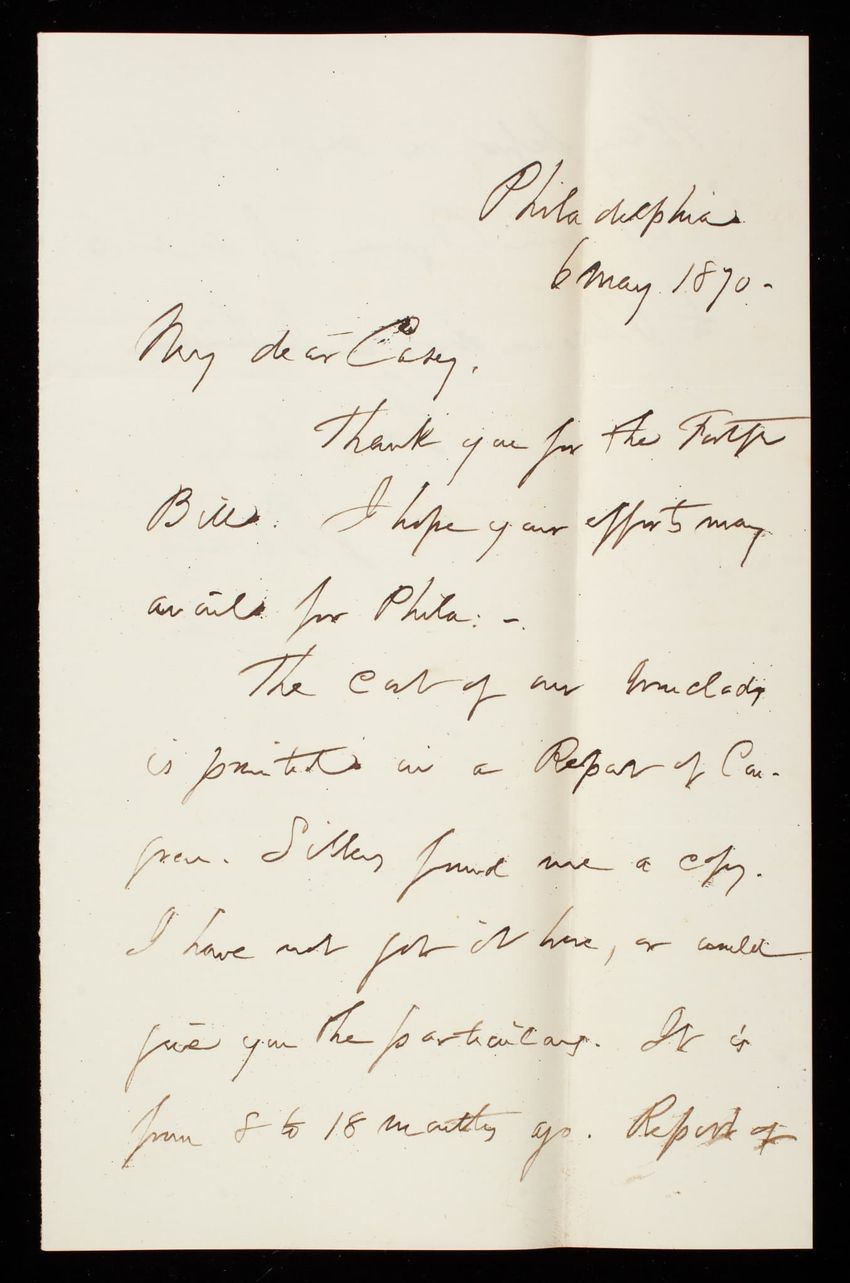 Philadelphia
6 May 1870 -
My dear Casey,
Thank you for the Fortf
Bill. I hope your efforts may
avail for Phila: -
The cost of our Ironclads
is printed in a Report of Con-
gress. Sibley found me a copy.
I have not got it here, or could
give you the particulars. It is
from 8 to 18 months ago. Report of